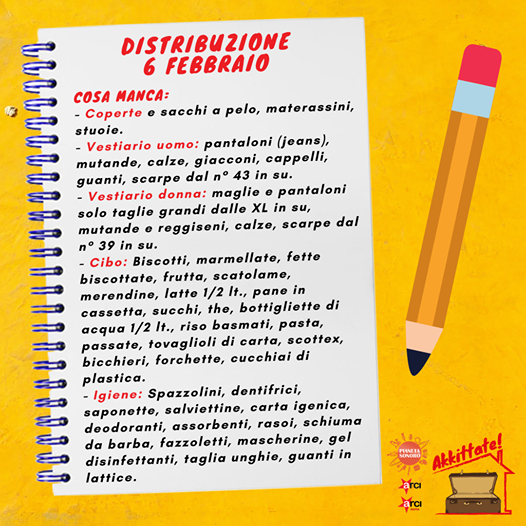 DISTRIBUZIONE
6 FEBBRAIO
COSA MANCA:
- Coperte e sacchi a pelo, materassini,
stuoie.
- Vestiario uomo: pantaloni (jeans),
mutande, calze, giacconi, cappelli,
guanti, scarpe dal n° 43 in su.
- Vestiario donna: maglie e pantaloni
solo taglie grandi dalle XL in su,
mutande e reggiseni, calze, scarpe dal
n° 39 in su.
- Cibo: Biscotti, marmellate, fette
biscottate, frutta, scatolame,
merendine, latte 1/2 lt., pane in
cassetta, succhi, the, bottigliette di
acqua 1/2 lt., riso basmati, pasta,
passate, tovaglioli di carta, scottex,
bicchieri, forchette, cucchiai di
plastica.
- Igiene: Spazzolini, dentifrici,
saponette, salviettine, carta igenica,
deodoranti, assorbenti, rasoi, schiuma
da barba, fazzoletti, mascherine, gel
disinfettanti, taglia unghie, guanti in
lattice.
PIANETA
SONORO
arci
arci
Akkittate!